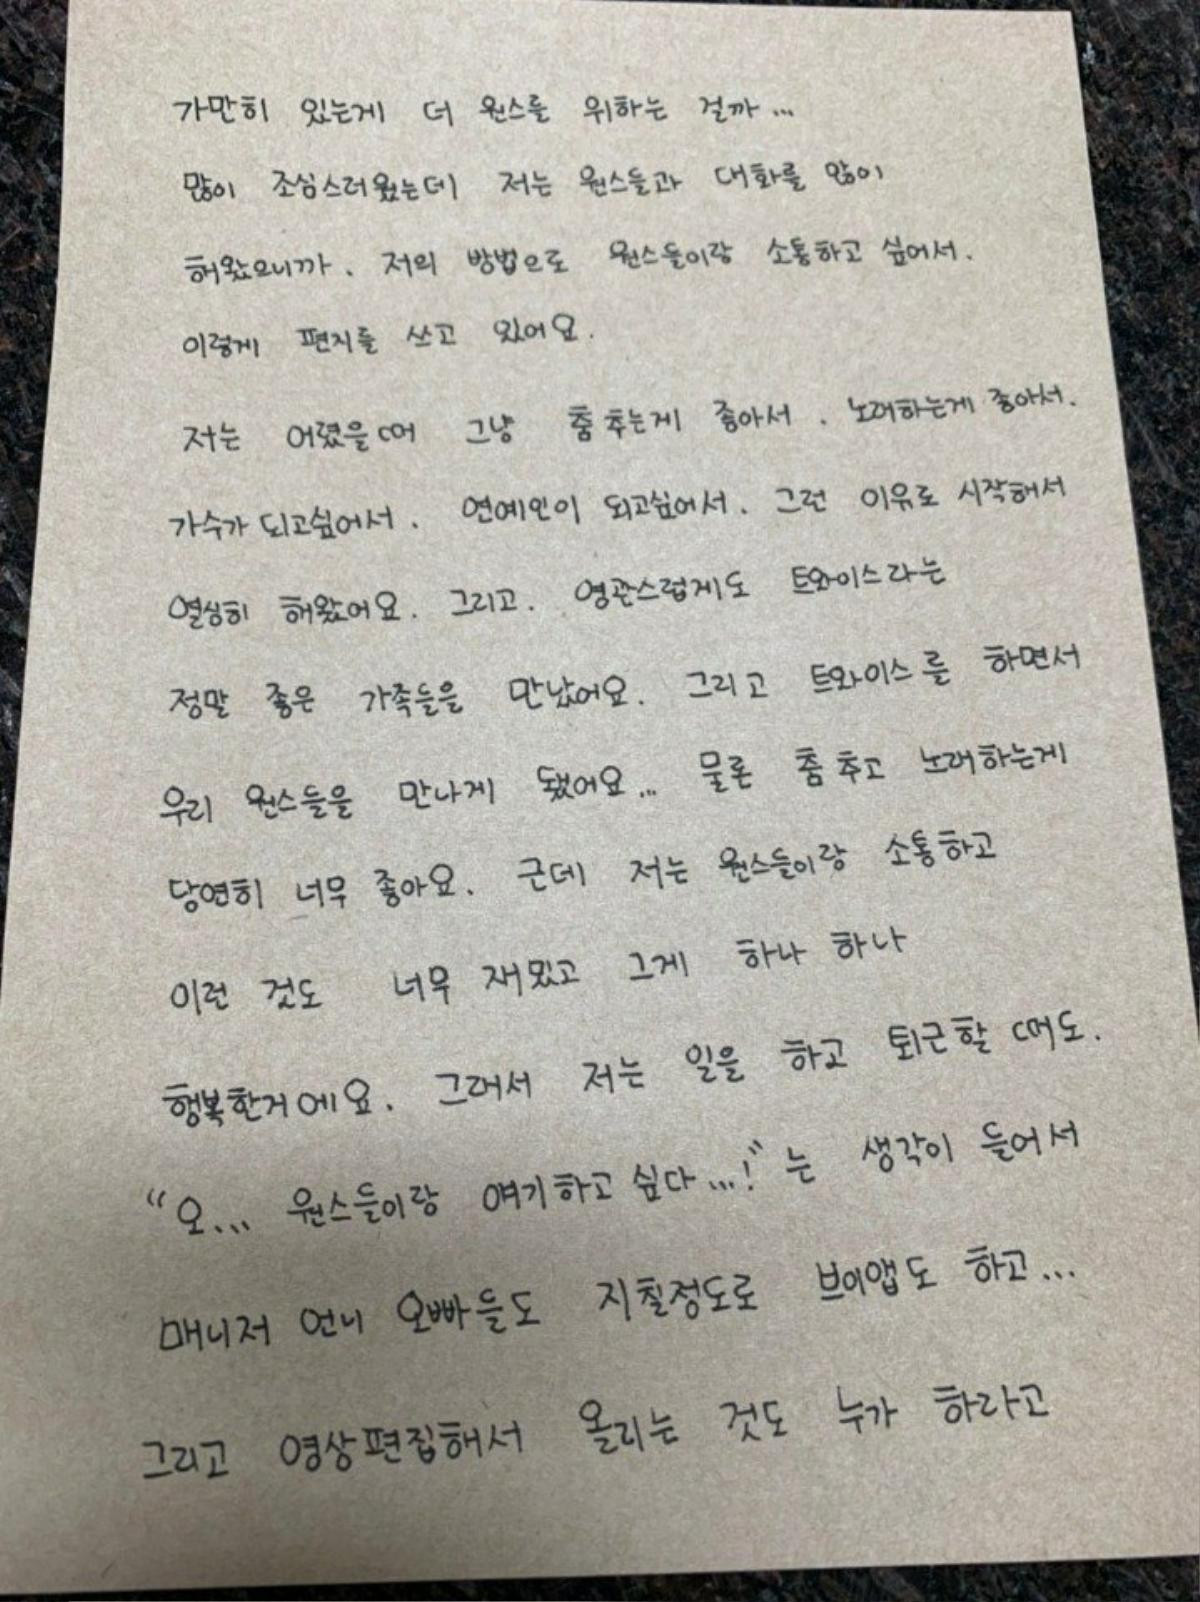 가만히 있는게 더 원스를 위하는 걸까...
많이 조심스러웠는데 저는 원스들과 대화를 많이
해왔으니까. 저의 방법으로 원스들이랑 소통하고 싶어서.
이렇게 편지를 쓰고 있어요.
저는 어렸을때 그냥 춤추는게 좋아서. 노래하는게 좋아서.
가수가 되고싶어서. 연예인이 되고싶어서. 그런 이유로 시작해서
열심히 해왔어요. 그리고. 영관스럽게도 트와이스라는
정말 좋은 가족들을 만났어요. 그리고 트와이스를 하면서
우리 원스들을 만나게 됐어요... 물론 춤추고 노래하는게
당연히 너무 좋아요. 근데 저는 원스들이랑 소통하고
이런 것도 너무 재밌고 그게 하나 하나
행복한거에요. 그래서 저는 일을 하고 퇴근할 때도.
"오... 원스들이랑 얘기하고 싶다...!" 는 생각이 들어서
매니저 언니 오빠들도 지칠정도로 브이앱도 하고...
그리고 영상편집해서 올리는 것도 누가 하라고